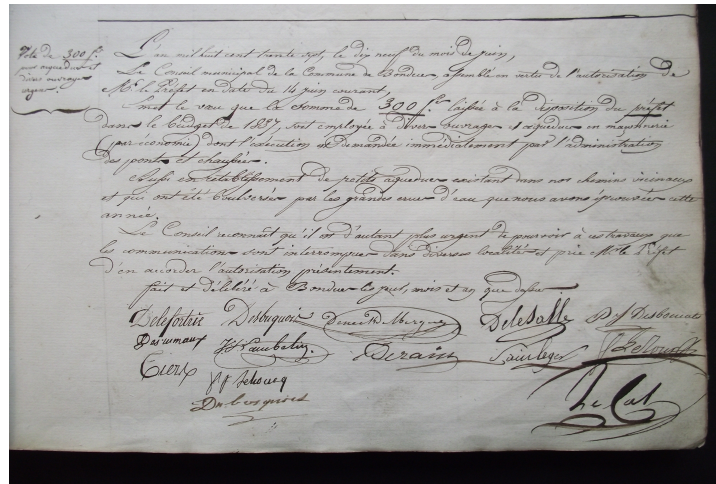 Vote de 300 f.
pour aqueducs et
divers ouvrages
urgens.
L'an mil huit cent trente sept, le dix neuf du mois de juin,
Le Conseil municipal de la Commune de Bondues, assemblé en vertu de l'autorisation de
Mr. le Préfet en date du 14 juin courant,
émet le vœu que la somme de 300 f. laissée à la disposition du préfet
dans le budget de 1837, soit employée à divers ouvrages et aqueducs en maçonnerie
(par économie) dont l'exécution est demandée immédiatement par l'administration
des ponts et chaussées.
Aussi en établissement de petits aqueducs existant dans nos chemins vicinaux
et qui ont été bouleversés par les grandes crues d'eau que nous avons éprouvées cette
année.
Le Conseil reconnaît qu'il est d'autant plus urgent de pourvoir à ces travaux que
les communications sont interrompues dans diverses localités et prie Mr. le Préfet
d'en accorder l'autorisation présentement.
fait et délibéré à Bondues les jour, mois et an que dessus.
Delefortrie Desbuquois Delesalle
Desrumaux Derain
P f Lehoucq
Le Cat